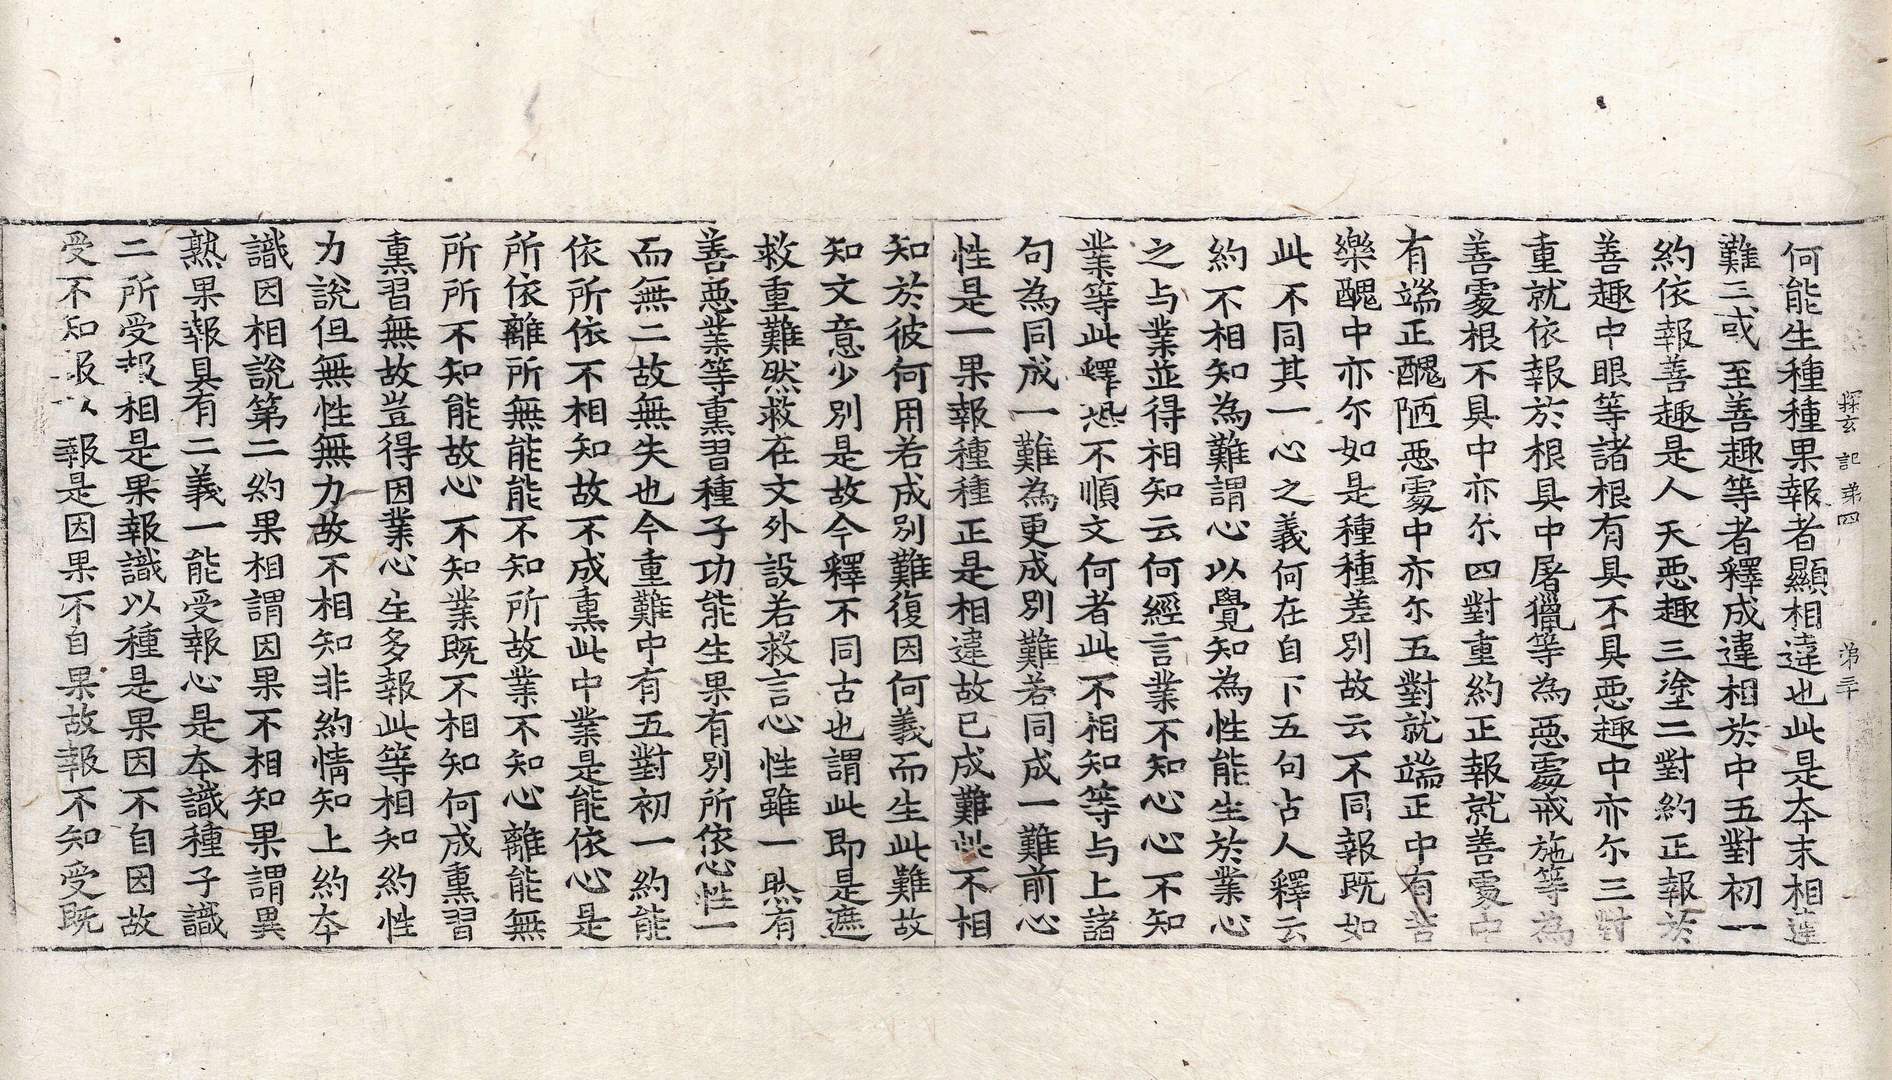 探玄記第四 第三十
何能生種種果報者顯相違也此是本末相違
難三或至善趣等者釋成違相於中五對初一
約依報善趣是人天惡趣三塗二對約正報於
善趣中眼等諸根有具不具惡趣中亦尒三對
重就依報於根具中屠獵等為惡處戒施等為
善處根不具中亦尒四對重約正報就善處中
有端正醜陋惡處中亦尒五對就端正中有苦
樂醜中亦尒如是種種差別故云不同報既如
此不同其一心之義何在自下五句古人釋云
約不相知為難謂心以覺知為性能生於業心
之与業並得相知云何經言業不知心心不知
業等此釋恐不順文何者此不相知等与上諸
句為同成一難為更成別難若同成一難前心
性是一果報種種正是相違故已成難此不相
知於彼何用若成別難復因何義而生此難故
知文意少別是故今釋不同古也謂此即是遮
救重難然救在文外設若救言心性雖一然有
善惡業等熏習種子功能生果有別所依心性一
而無二故無失也今重難中有五對初一約能
依所依不相知故不成熏此中業是能依心是
所依離所無能能不知所故業不知心離能無
所所不知能故心不知業既不相知何成熏習
熏習無故豈得因業心生多報此等相知約性
力說但無性無力故不相知非約情知上約本
識因相說第二約果相謂因果不相知果謂異
熟果報具有二義一能受報心是本識種子識
二所受報相是果報識以種是果因不自因故
受不知報以報是因果不自果故報不知受既